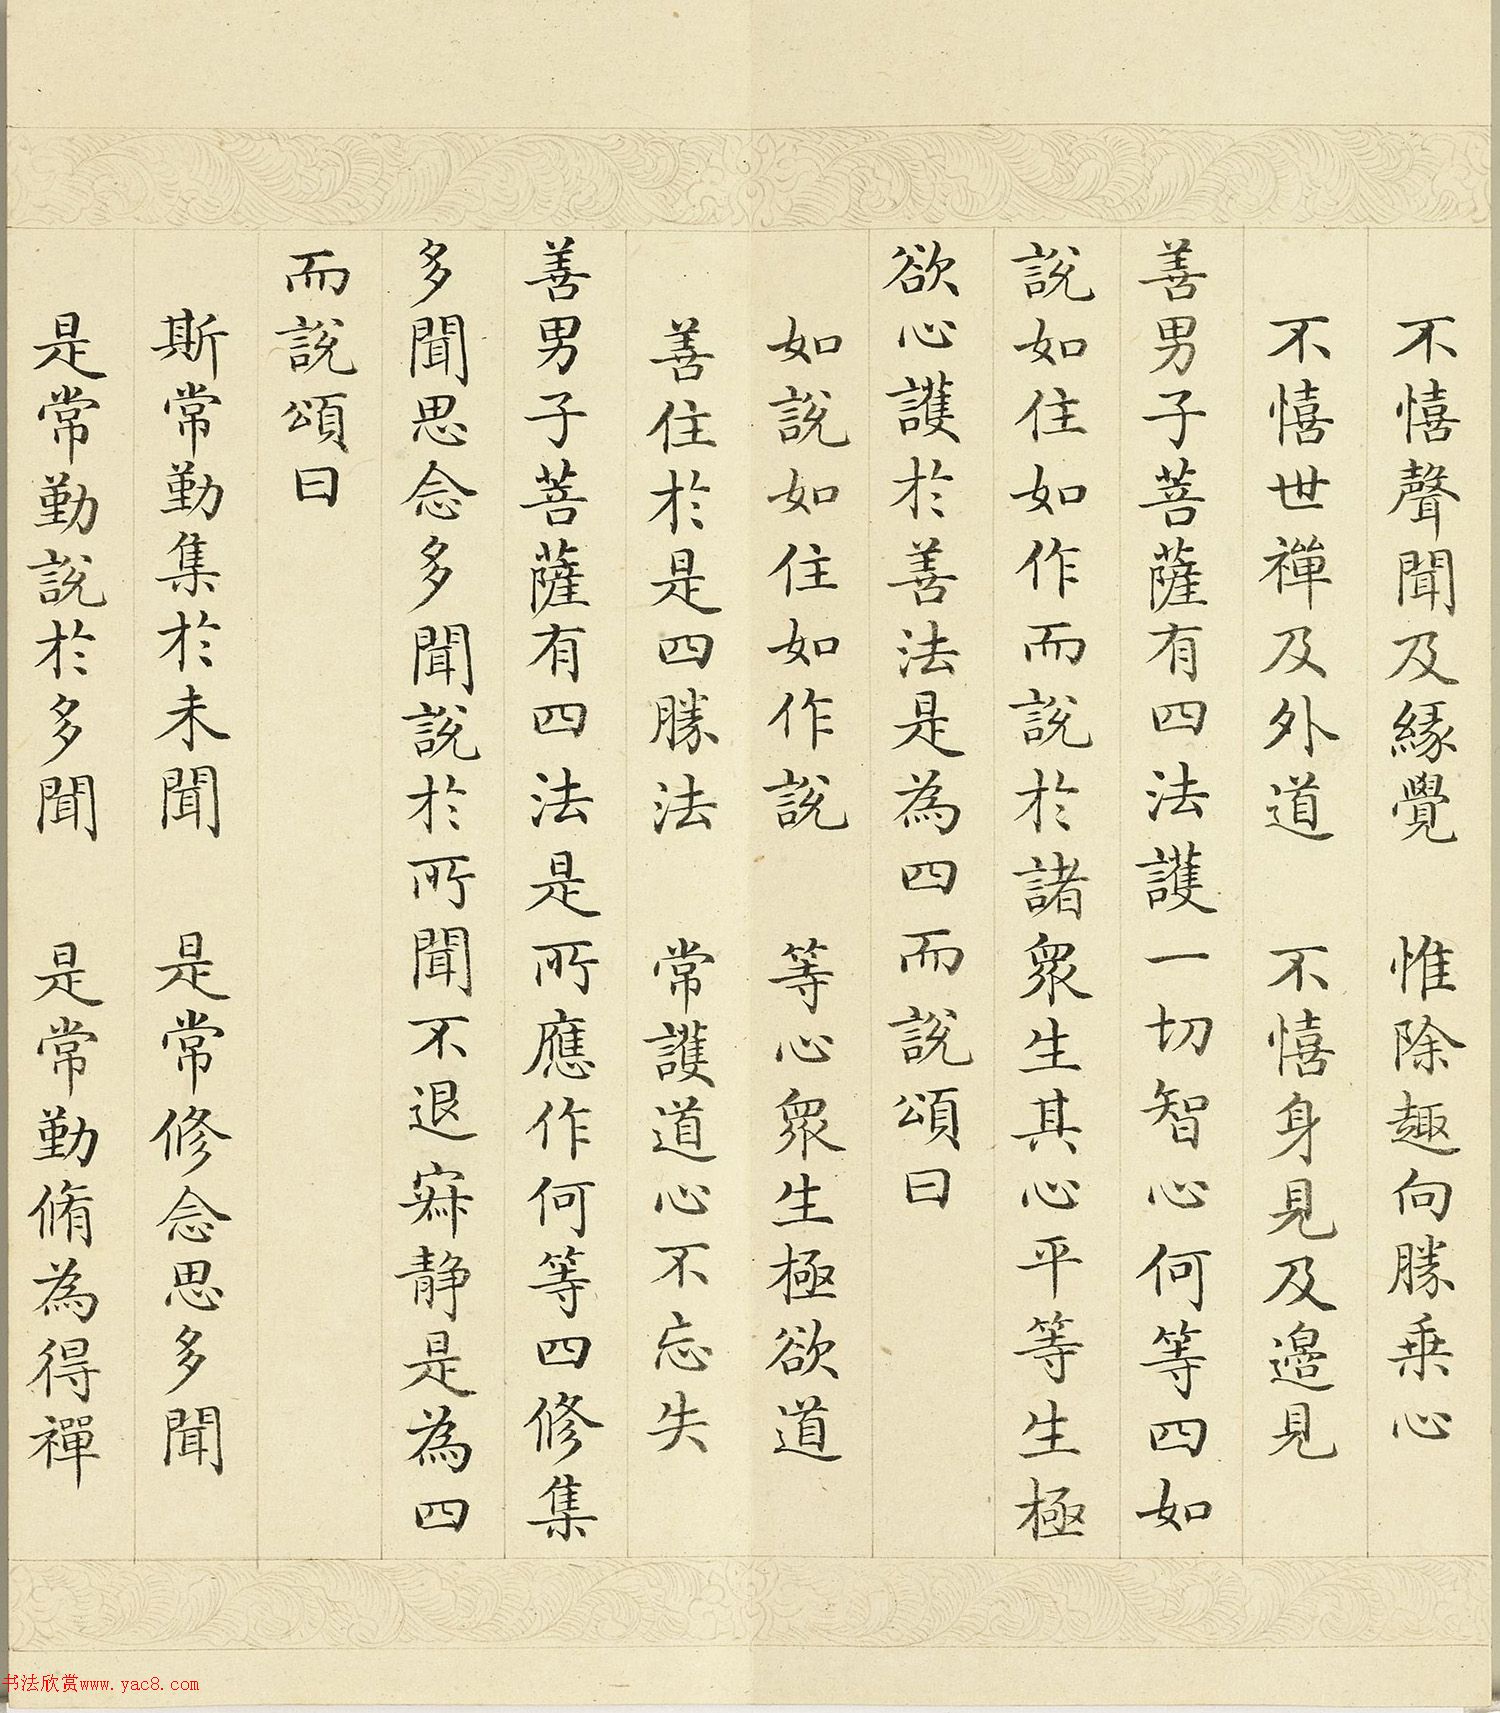 不憘聲聞及緣覺　惟除趣向勝乗心
不憘世禪及外道　不憘身見及邊見
善男子菩薩有四法護一切智心何等四如
說如住如作而說於諸眾生其心平等生極
欲心護於善法是為四而說頌曰
如說如住如作說　等心眾生極欲道
善住於是四勝法　常護道心不忘失
善男子菩薩有四法是所應作何等四修集
多聞思念多聞說於所聞不退寂静是為四
而說頌曰
斯常勤集於未聞　是常修念思多聞
是常勤說於多聞　是常勤脩為得禪
书法欣赏www.yac8.com